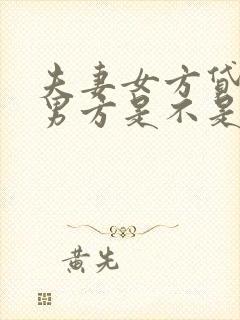 夫妻女方贷
男方是不是
黄先